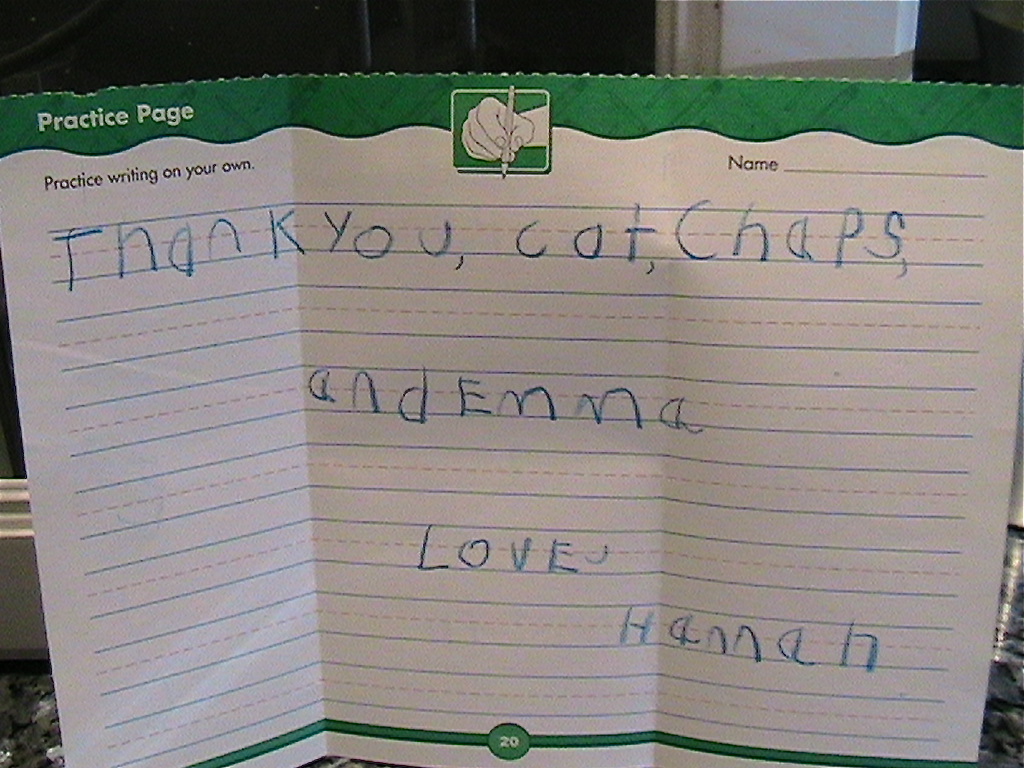 Practice Page
Practice writing on your own.
Name
Thank You, cat, Chaps,
and Emma
LOVE,
Hannah
20